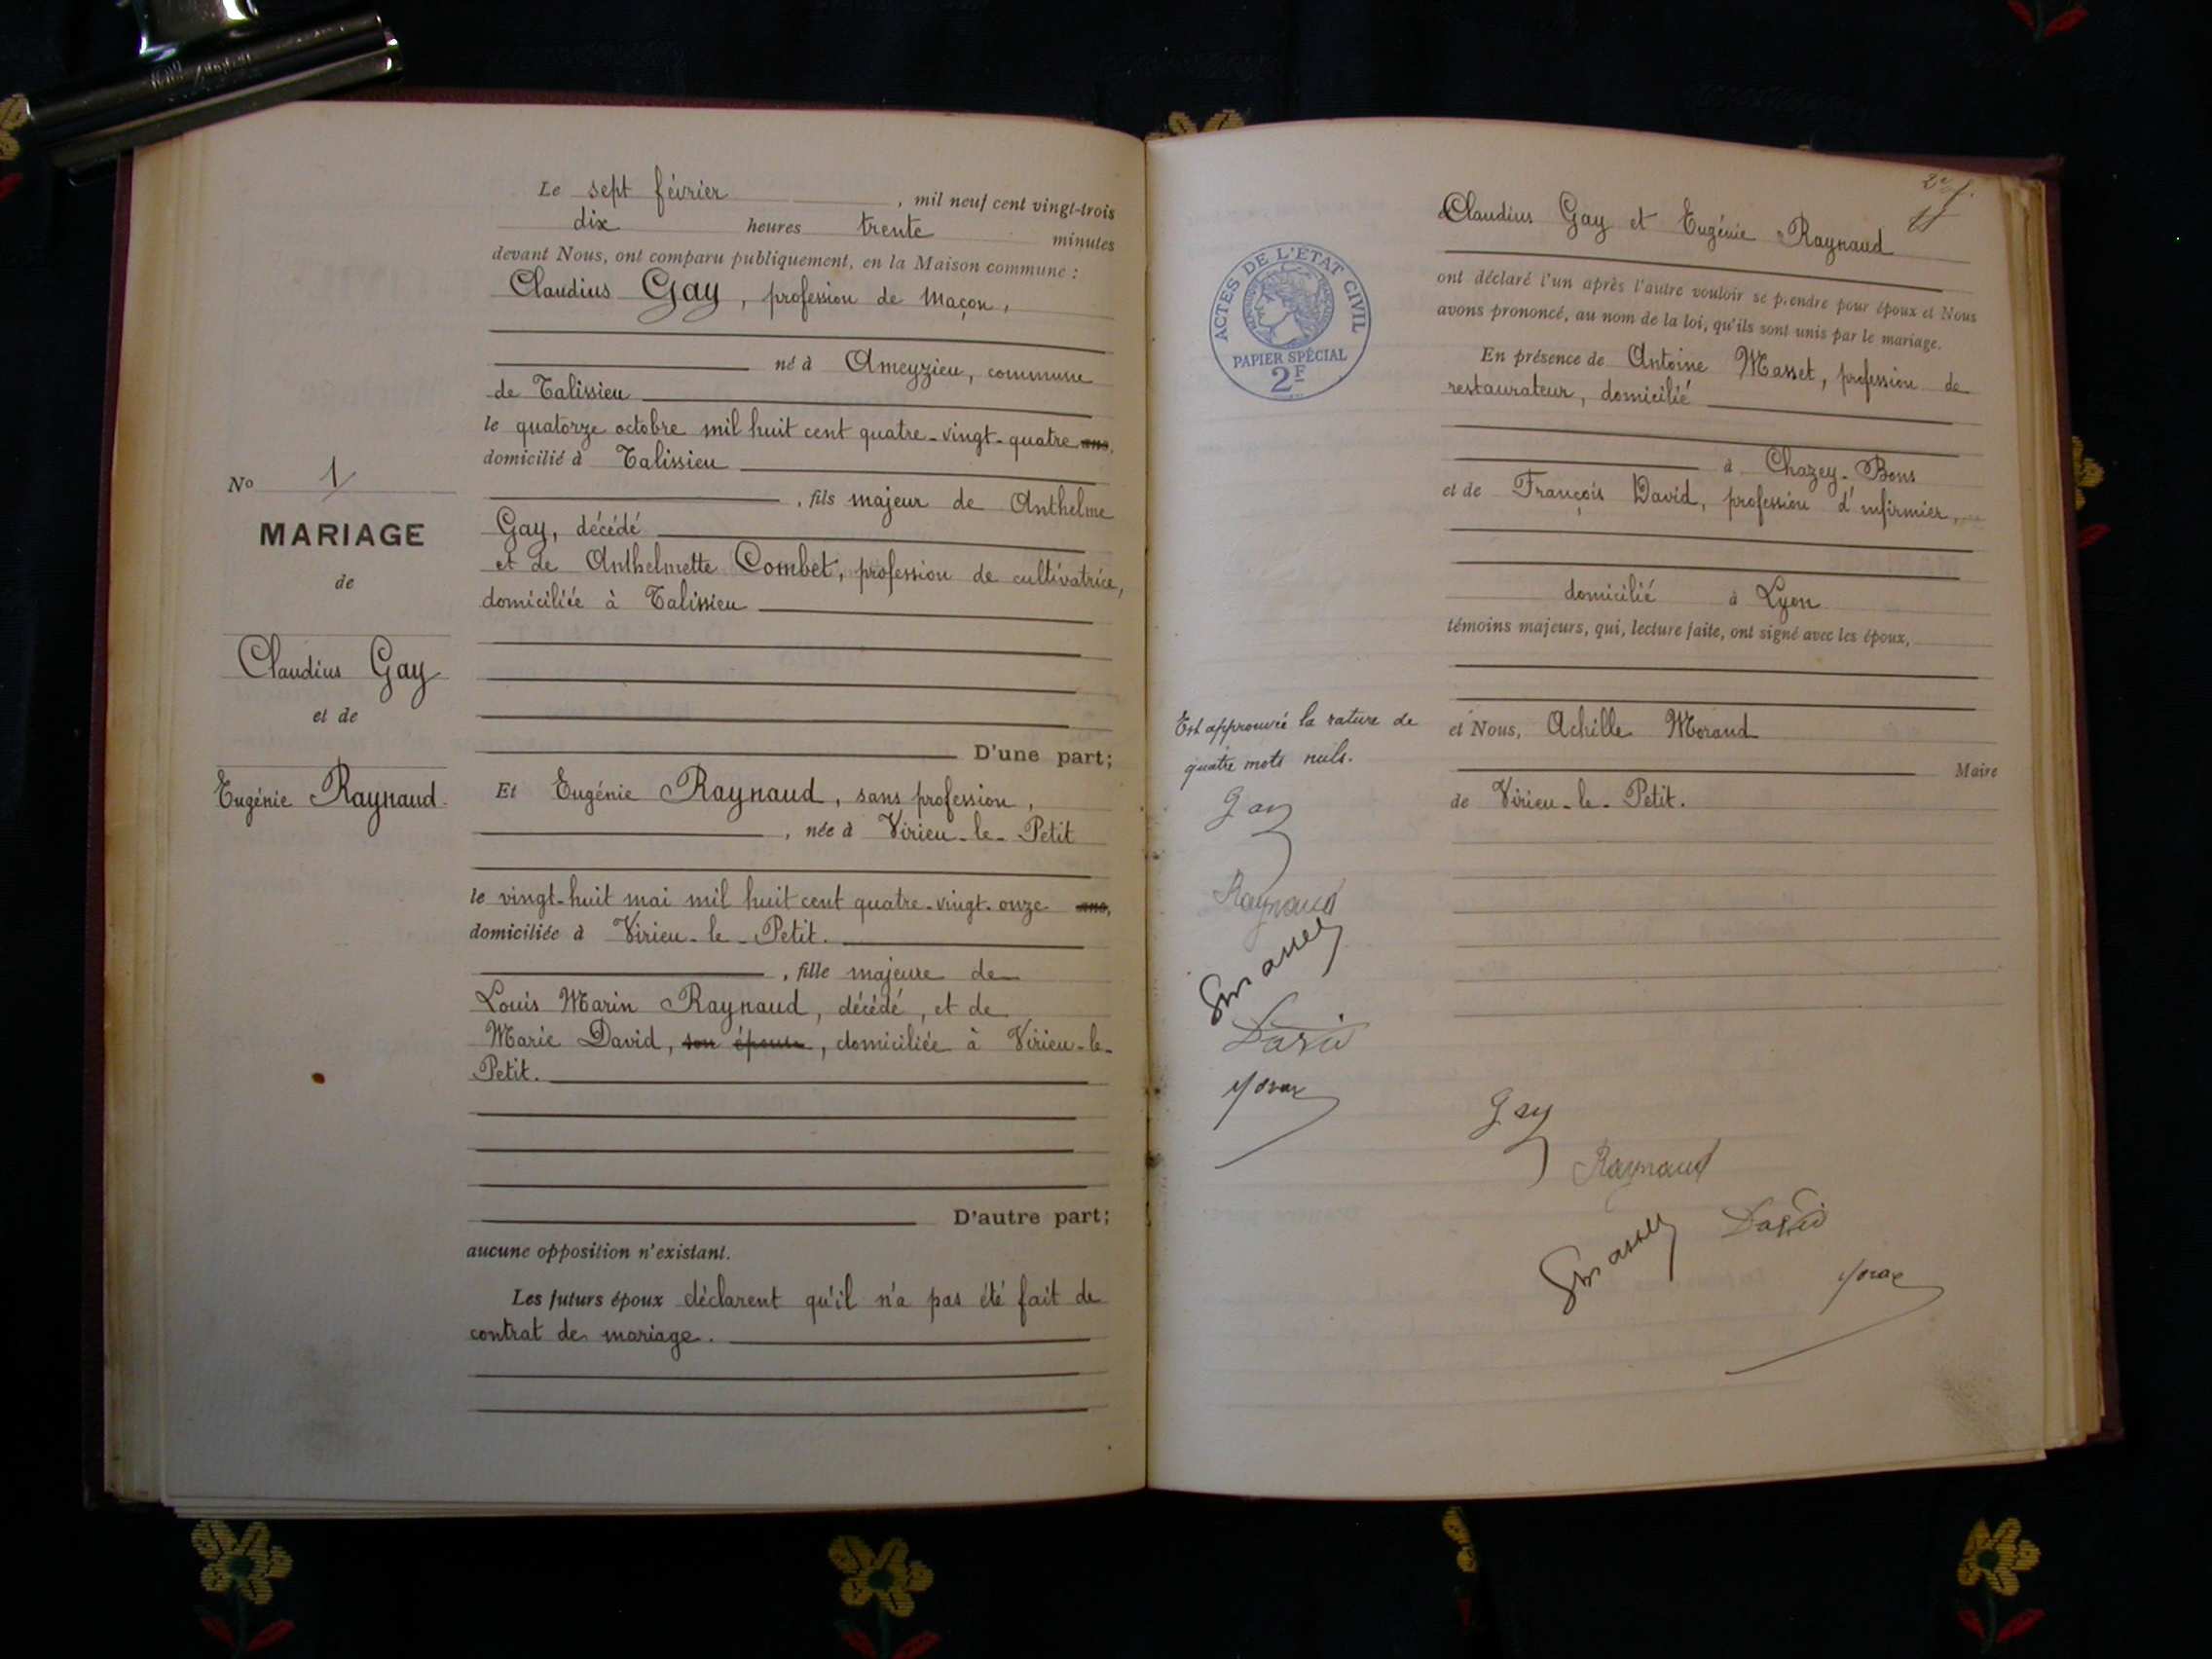 Le sept février , mil neuf cent vingt-trois
dix heures trente minutes
devant Nous, ont comparu publiquement, en la Maison commune :
Claudius Gay, profession de maçon,
né à Ameyzieu, commune
de Talissieu
le quatorze octobre mil huit cent quatre-vingt-quatre ans,
domicilié à Talissieu
, fils majeur de Anthelme
Gay, décédé
et de Anthelmette Combet, profession de cultivatrice,
domiciliée à Talissieu
D'une part;
No 1
MARIAGE
de
Claudius Gay
et de
Eugénie Raynaud
Et Eugénie Raynaud, sans profession,
, née à Virieu-le-Petit
le vingt-huit mai mil huit cent quatre-vingt-onze ans,
domiciliée à Virieu-le-Petit.
, fille majeure de
Louis Marin Raynaud, décédé, et de
Marie David, son épouse, domiciliée à Virieu-le-
Petit.
D'autre part;
aucune opposition n'existant.
Les futurs époux déclarent qu'il n'a pas été fait de
contrat de mariage.
2e f.
Claudius Gay et Eugénie Raynaud
ont déclaré l'un après l'autre vouloir se prendre pour époux et Nous
avons prononcé, au nom de la loi, qu'ils sont unis par le mariage.
ACTES DE L'ÉTAT CIVIL
PAPIER SPÉCIAL
2F
En présence de Antoine Masset, profession de
restaurateur, domicilié
à Chazey-Bons
et de François David, profession d'infirmier,
domicilié à Lyon
témoins majeurs, qui, lecture faite, ont signé avec les époux,
et Nous, Achille Morand
Maire
de Virieu-le-Petit.
Est approuvée la rature de
quatre mots nuls.
Gay
Raynaud
Masset
David
Gay
Raynaud
Masset
David